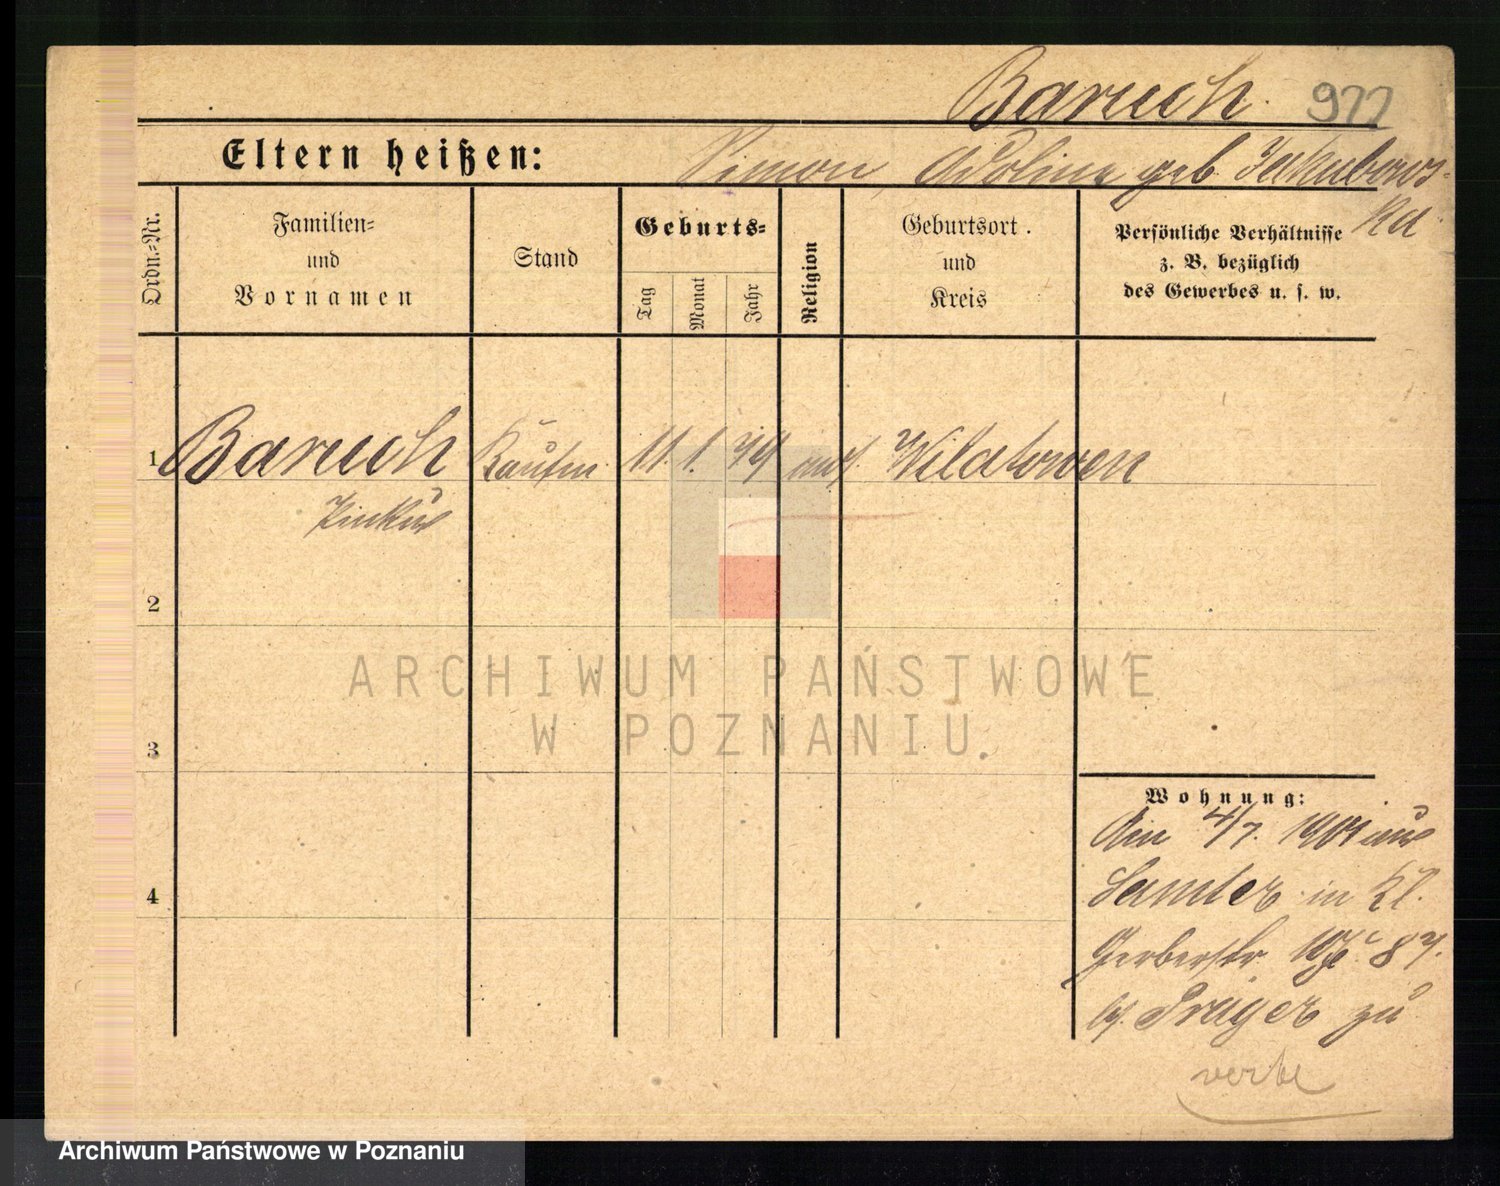 Baruch. 977
Eltern heißen: Simon, geb. Jakubows-
ka
Ordn.-Nr.
Familien-
und
Vornamen
Stand
Geburts-
Tag
Monat
Jahr
Religion
Geburtsort.
und
Kreis
Persönliche Verhältnisse
z. B. bezüglich
des Gewerbes u. s. w.
1 Baruch Kaufm. 11. 1. 79 mos. Wilatowen
Pinkus
2
3
4
Wohnung:
Am 4/7. 1901 aus
Samter in Kl.
Gerberstr. 8
b/. Prager zu
ARCHIWUM PAŃSTWOWE
W POZNANIU.
Archiwum Państwowe w Poznaniu